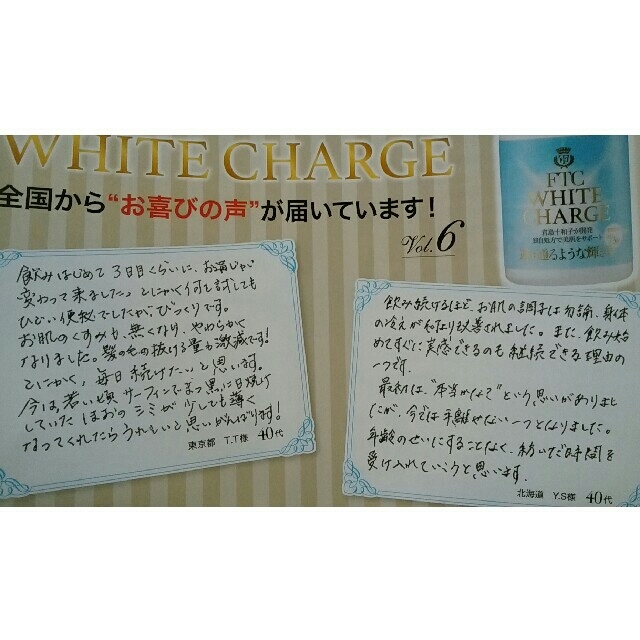 WHITE CHARGE
全国から“お喜びの声”が届いています！
Vol.6
FTC
WHITE
CHARGE
君島十和子が開発
独自処方で美肌をサポート
飲みはじめて3日目くらいに、お通じが
変わって来ました。とにかく何を試しても
ひどい便秘でしたが、びっくりです。
お肌のくすみも、無くなり、やわらかく
なりました。髪の毛の抜ける量も激減です！
とにかく、毎日続けたいと思います。
今は若い頃サーフィンでまっ黒に日焼け
していたほおのシミが少しでも薄く
なってくれたらうれしいと思いがんばります！
東京都 T.T様 40代
飲み続けるほど、お肌の調子は勿論、身体
の冷えがかなり改善されました。また、飲み始
めてすぐに実感できるのも継続できる理由の
一つです。
最初は、“本当かなぁ”という思いがありまし
たが、今では手離せない一つとなりました。
年齢のせいにすることなく、紡いだ時間を
受け入れていこうと思います。
北海道 Y.S様 40代